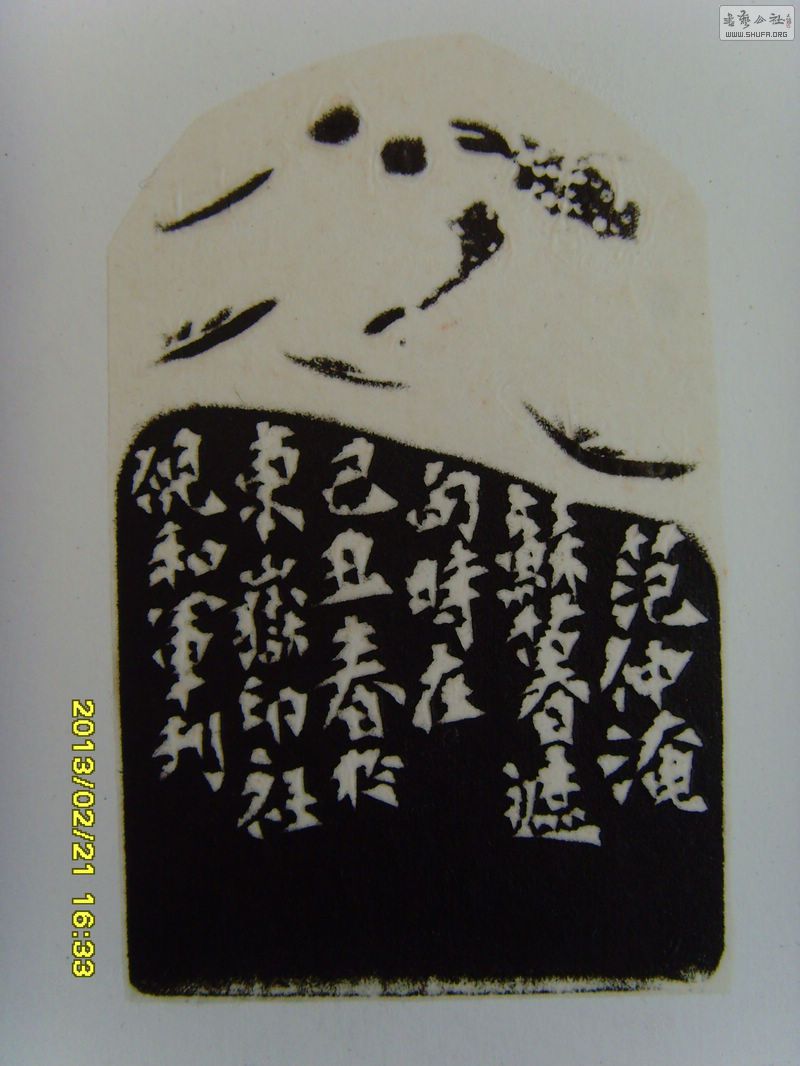 書藝公社
WWW.SHUFA.ORG
范仲淹
蘇暮遮
句時在
己丑春於
東嶽印社
倪和軍刊
2013/02/21 16:33